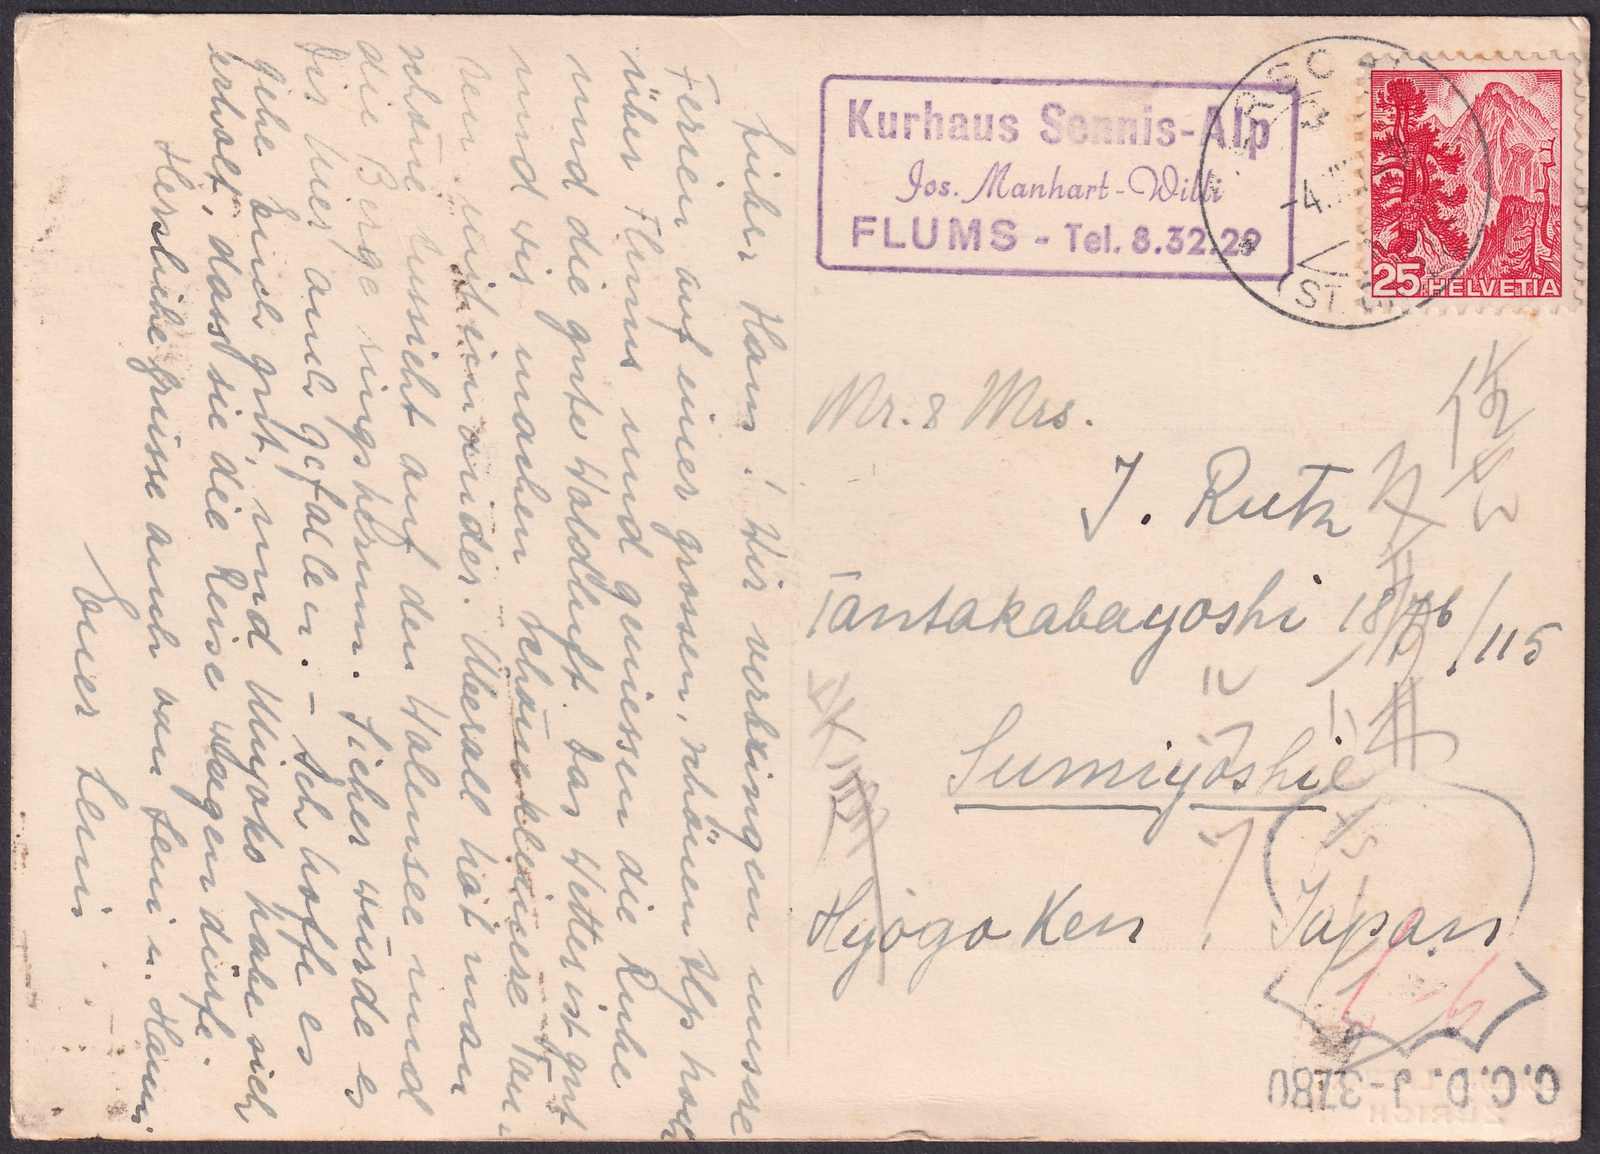 Lieber Hans! Wir verbringen unsere
Ferien auf einer grossen, schönen Alp hoch
über Flums und geniessen die Ruhe
und die gute Waldluft. Das Wetter ist gut
und wir machen schöne kleinere Tou-
ren miteinander. Überall hat man
schöne Aussicht auf den Walensee und
die Berge ringsherum. Sicher würde es
Dir hier auch gefallen. - Ich hoffe es
gehe Euch gut, und Miyoko habe sich
erholt, dass sie die Reise wagen dürfe.
Herzliche Grüsse auch von Leni u. Hanni
Euer
Kurhaus Sennis-Alp
Jos. Manhart-Willi
FLUMS - Tel. 8.32.29
-4.
(ST.
25 HELVETIA
Mr. & Mrs.
J. Rutz
Tantakabayoshi 18/76/115
Sumiyoshi
Hyógo Ken, Japan
C.C.D. J-3780
ZÜRICH